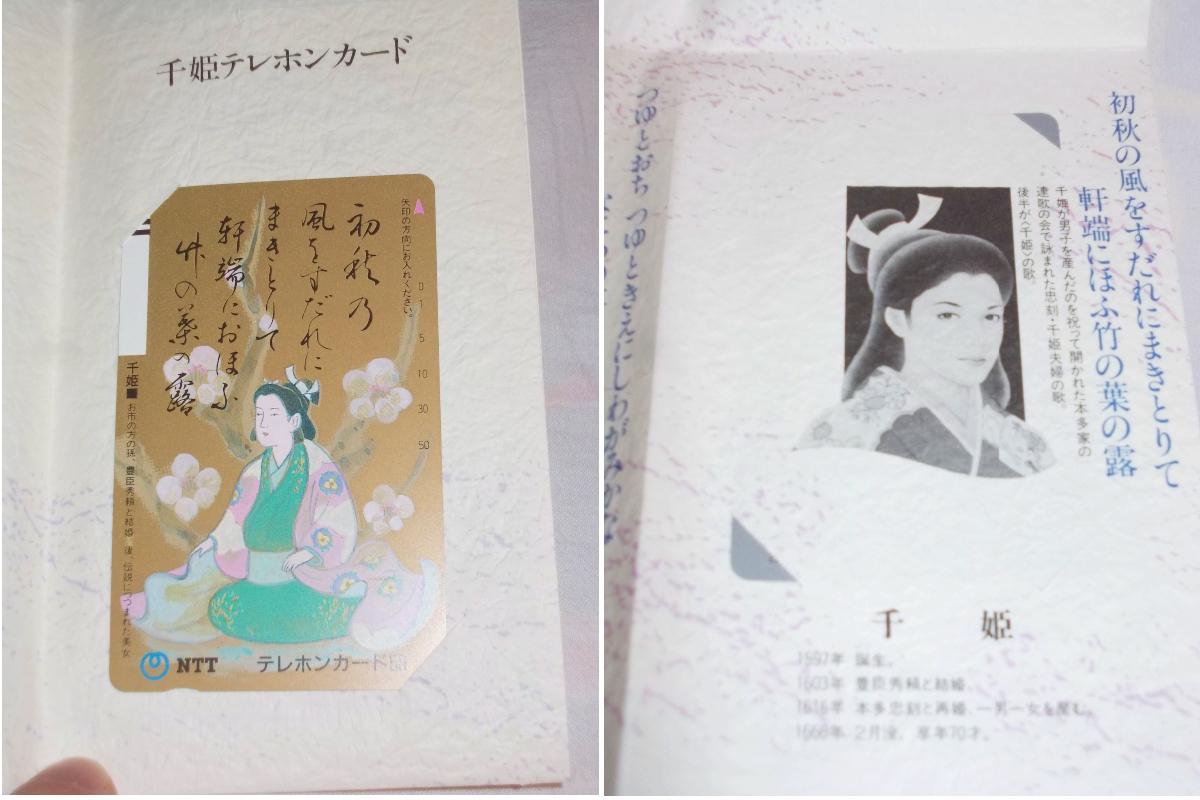 千姫テレホンカード
矢印の方向にお入れください。
初秋乃
風をすだれに
まきとりて
軒端におほふ
竹の葉の露
0
1
5
10
30
50
千姫■お市の方の孫、豊臣秀頼と結婚 後、伝説につつまれた美女
NTT
テレホンカード
初秋の風をすだれにまきとりて
軒端にほふ竹の葉の露
千姫が男子を産んだのを祝って開かれた本多家の
連歌の会で詠まれた忠刻・千姫夫婦の歌。
後半が〈千姫〉の歌。
つゆとおち つゆときえにしわがみかな
千 姫
1597年 誕生。
1603年 豊臣秀頼と結婚。
1616年 本多忠刻と再婚、一男一女を産む。
1666年 2月没。享年70才。